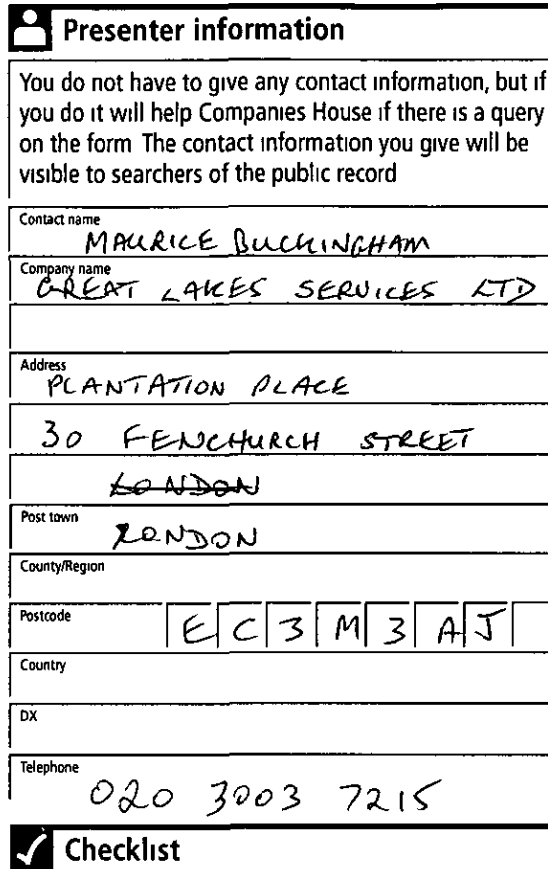 Presenter information
You do not have to give any contact information, but if
you do it will help Companies House if there is a query
on the form The contact information you give will be
visible to searchers of the public record
Contact name
MAURICE BUCKINGHAM
Company name
GREAT LAKES SERVICES LTD
Address
PLANTATION PLACE
30 FENCHURCH STREET
LONDON
Post town
LONDON
County/Region
Postcode
EC3M 3AJ
Country
DX
Telephone
020 3003 7215
Checklist